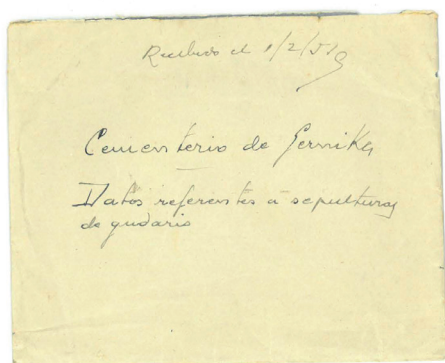 Recibido el 1/2/51
Cementerio de Gernika
Datos referentes á sepulturas
de gudaris